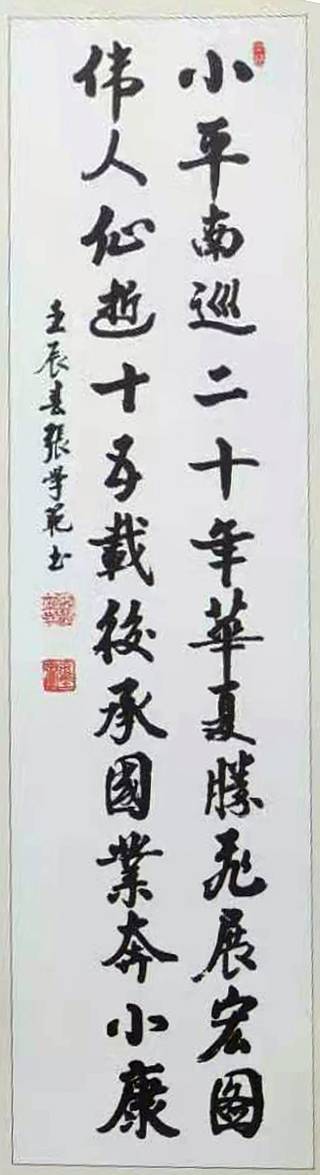 小平南巡二十年華夏勝飛展宏图
伟人仙逝十五載後承國業奔小康
壬辰春張学范书